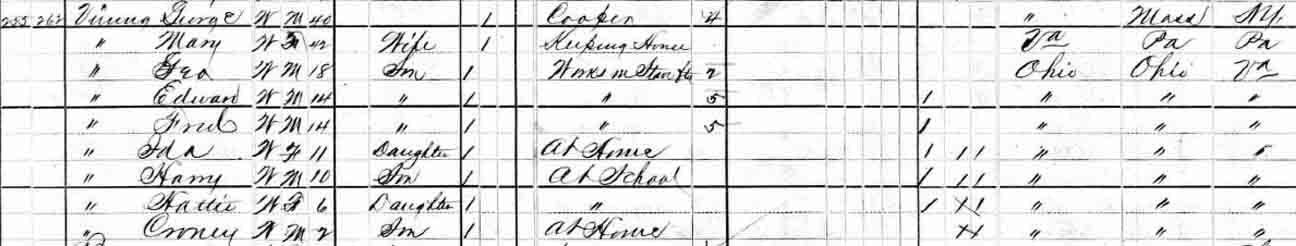 255 262 Vining George W M 40 1 Cooper 4 " Mass N.Y.
" Mary W F 42 Wife 1 Keeping House Va Pa Pa
" Geo W M 18 Son 1 Works in Stave 2 Ohio Ohio Va
" Edward W M 14 " 1 " 5 1 " " "
" Fred W M 14 " 1 " 5 1 " " "
" Ida W F 11 Daughter 1 At Home 1 1 1 " " "
" Harry W M 10 Son 1 At School 1 1 1 " " "
" Hattie W F 6 Daughter 1 " 1 " " "
" Croney W M 2 Son 1 At Home " " "